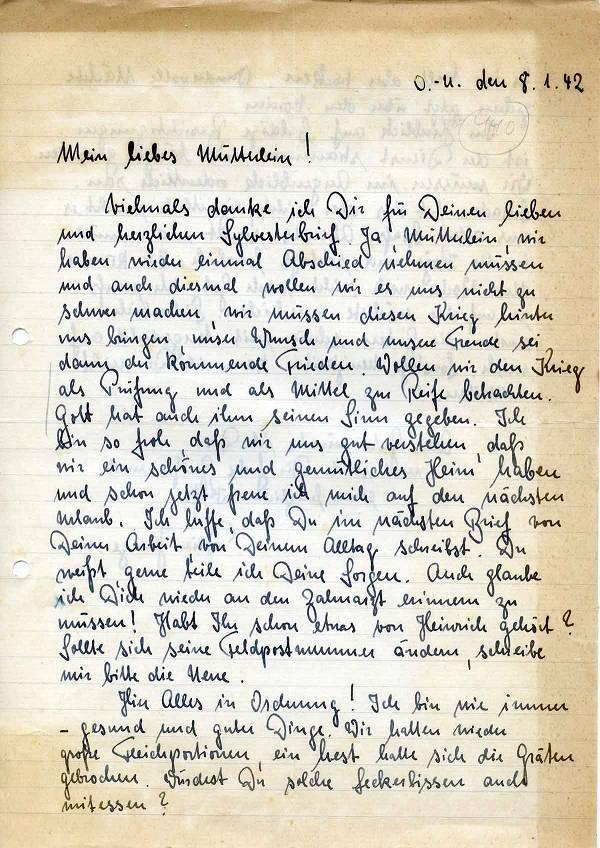 O.-U. den 8.1.42
Mein liebes Mütterlein!
Vielmals danke ich Dir für Deinen lieben
und herzlichen Sylvesterbrief. Ja, Mütterlein, wir
haben wieder einmal Abschied nehmen müssen
und auch diesmal wollen wir es uns nicht zu
schwer machen, wir müssen diesen Krieg hinter
uns bringen, unser Wunsch und unsere Freude sei
dann der kommende Frieden. Wollen wir den Krieg
als Prüfung und als Mittel zur Reife betrachten.
Gott hat auch ihm seinen Sinn gegeben. Ich
bin so froh daß wir uns gut verstehen, daß
wir ein schönes und gemütliches Heim haben
und schon jetzt freue ich mich auf den nächsten
Urlaub. Ich hoffe, daß Du im nächsten Brief von
Deiner Arbeit, von Deinem Alltag schreibst. Du
weißt, gerne teile ich Deine Sorgen. Auch glaube
ich Dich wieder an den Zahnarzt erinnern zu
müssen! Habt Ihr schon etwas von Heinrich gehört?
Sollte sich seine Feldpostnummer ändern, schreibe
mir bitte die Neue.
Hier Alles in Ordnung! Ich bin wie immer
- gesund und guter Dinge. Wir hatten wieder
große Fleischportionen, ein hatte sich die Gräten
gebrochen. Würdest Du solche Leckerbissen auch
mitessen?